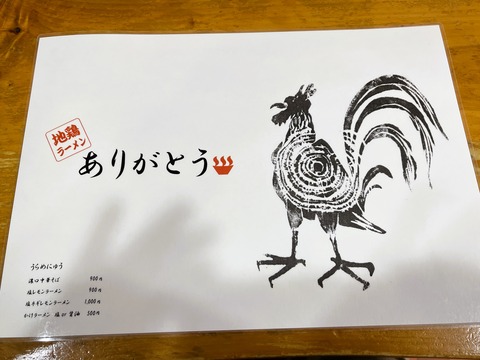 地鶏
ラーメン
ありがとう
うらめにゅう
濃口中華そば 900円
塩レモンラーメン 900円
塩ネギレモンラーメン 1,000円
かけラーメン 塩 or 醤油 500円